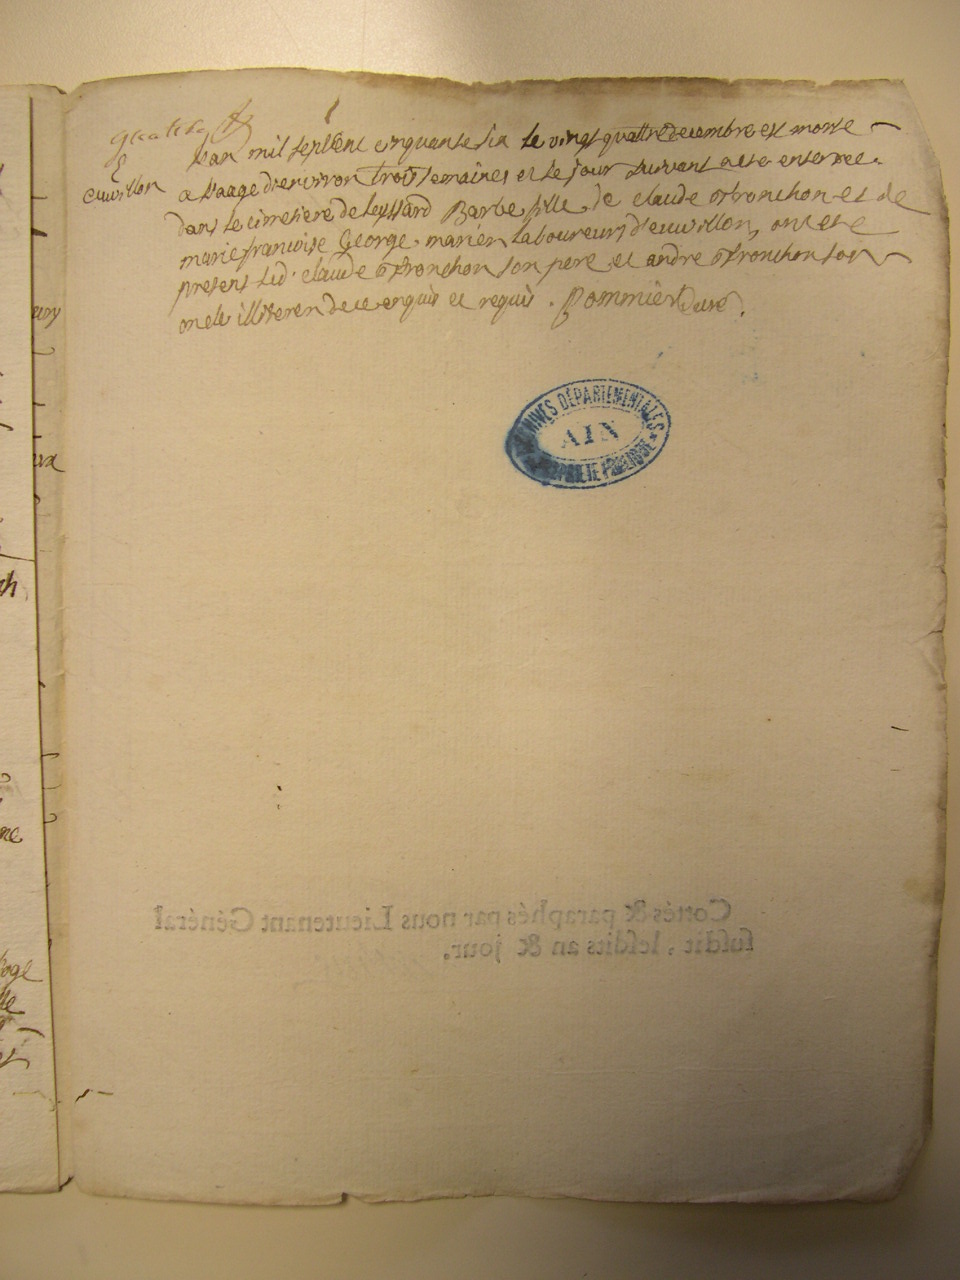 Lan mil septcent cinquante six le vingt quattre decembre est morte
euvillon
a Laage d'environ trois semaines et le jour suivant a été enterrée
dans le cimetiere de Leyssard Barbe fille de claude tronchon et de
marie francoise George mariés Laboureurs d'euvillon, ont ete
present led. claude tronchon son pere et andre tronchon son
oncle illiteren de ce enquis et requis. Pommier Curé.
ARCHIVES DÉPARTEMENTALES
AIN
PROPRIÉTÉ PUBLIQUE
Cottés & paraphés par nous Lieutenant Général
susdit, lesdits an & jour.